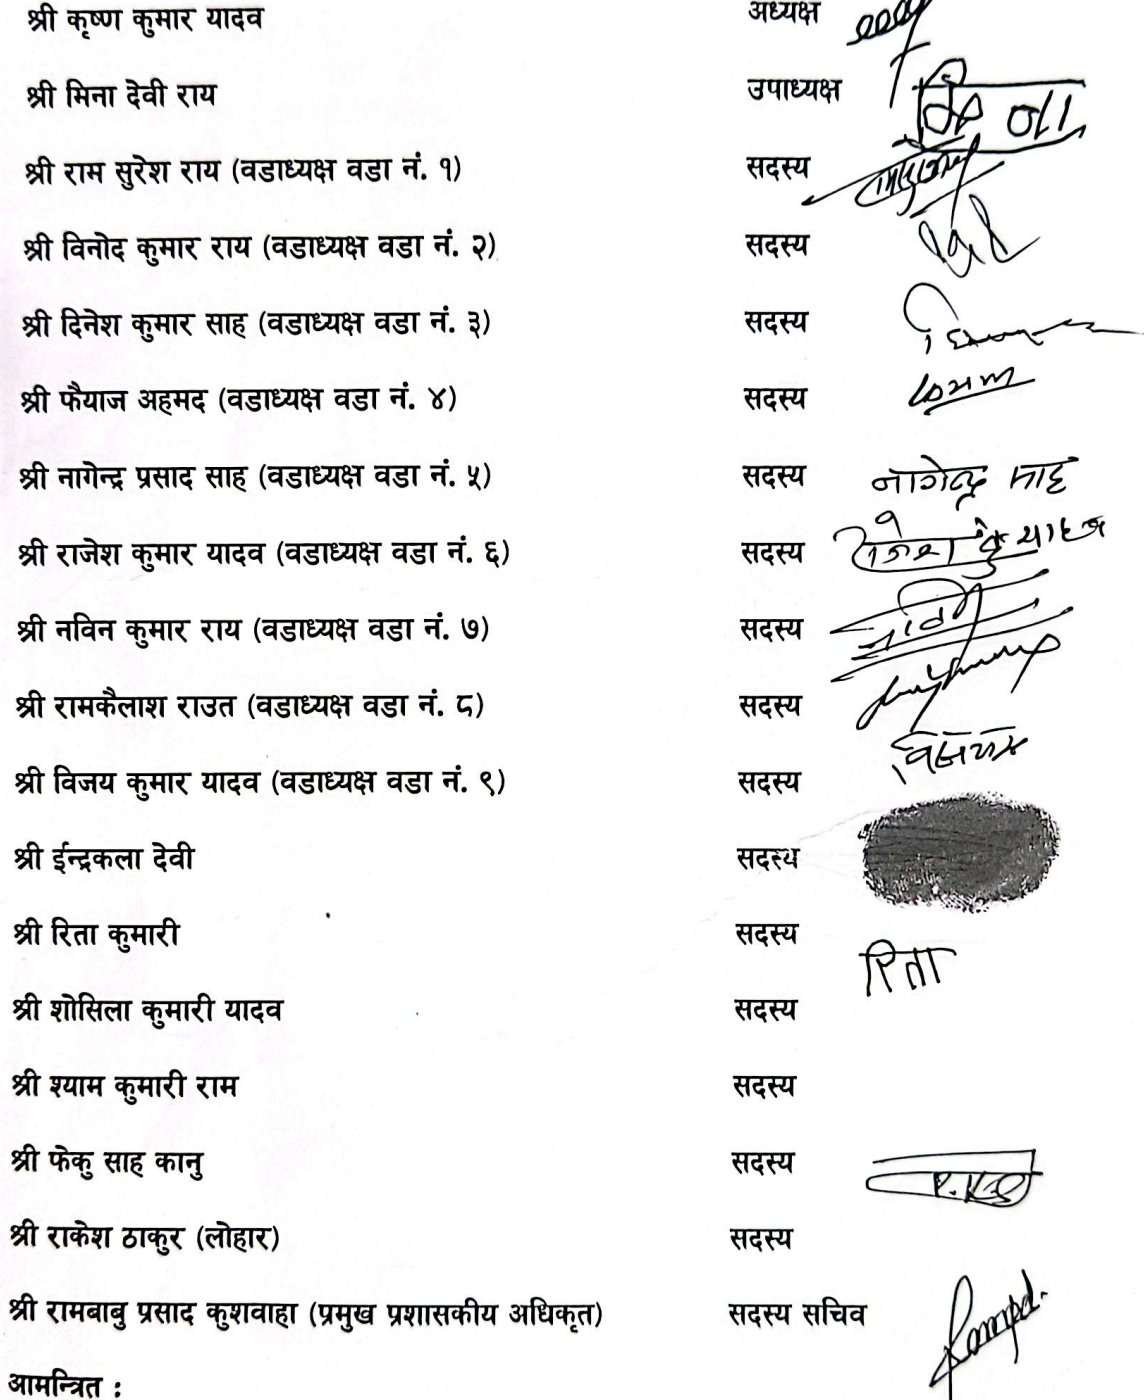 श्री कृष्ण कुमार यादव अध्यक्ष
श्री मिना देवी राय उपाध्यक्ष
श्री राम सुरेश राय (वडाध्यक्ष वडा नं. १) सदस्य
श्री विनोद कुमार राय (वडाध्यक्ष वडा नं. २) सदस्य
श्री दिनेश कुमार साह (वडाध्यक्ष वडा नं. ३) सदस्य
श्री फैयाज अहमद (वडाध्यक्ष वडा नं. ४) सदस्य
श्री नागेन्द्र प्रसाद साह (वडाध्यक्ष वडा नं. ५) सदस्य नागेन्द्र साह
श्री राजेश कुमार यादव (वडाध्यक्ष वडा नं. ६) सदस्य
श्री नविन कुमार राय (वडाध्यक्ष वडा नं. ७) सदस्य
श्री रामकैलाश राउत (वडाध्यक्ष वडा नं. ८) सदस्य
श्री विजय कुमार यादव (वडाध्यक्ष वडा नं. ९) सदस्य
श्री ईन्द्रकला देवी सदस्य
श्री रिता कुमारी सदस्य रिता
श्री शोसिला कुमारी यादव सदस्य
श्री श्याम कुमारी राम सदस्य
श्री फेकु साह कानु सदस्य
श्री राकेश ठाकुर (लोहार) सदस्य
श्री रामबाबु प्रसाद कुशवाहा (प्रमुख प्रशासकीय अधिकृत) सदस्य सचिव
आमन्त्रित :